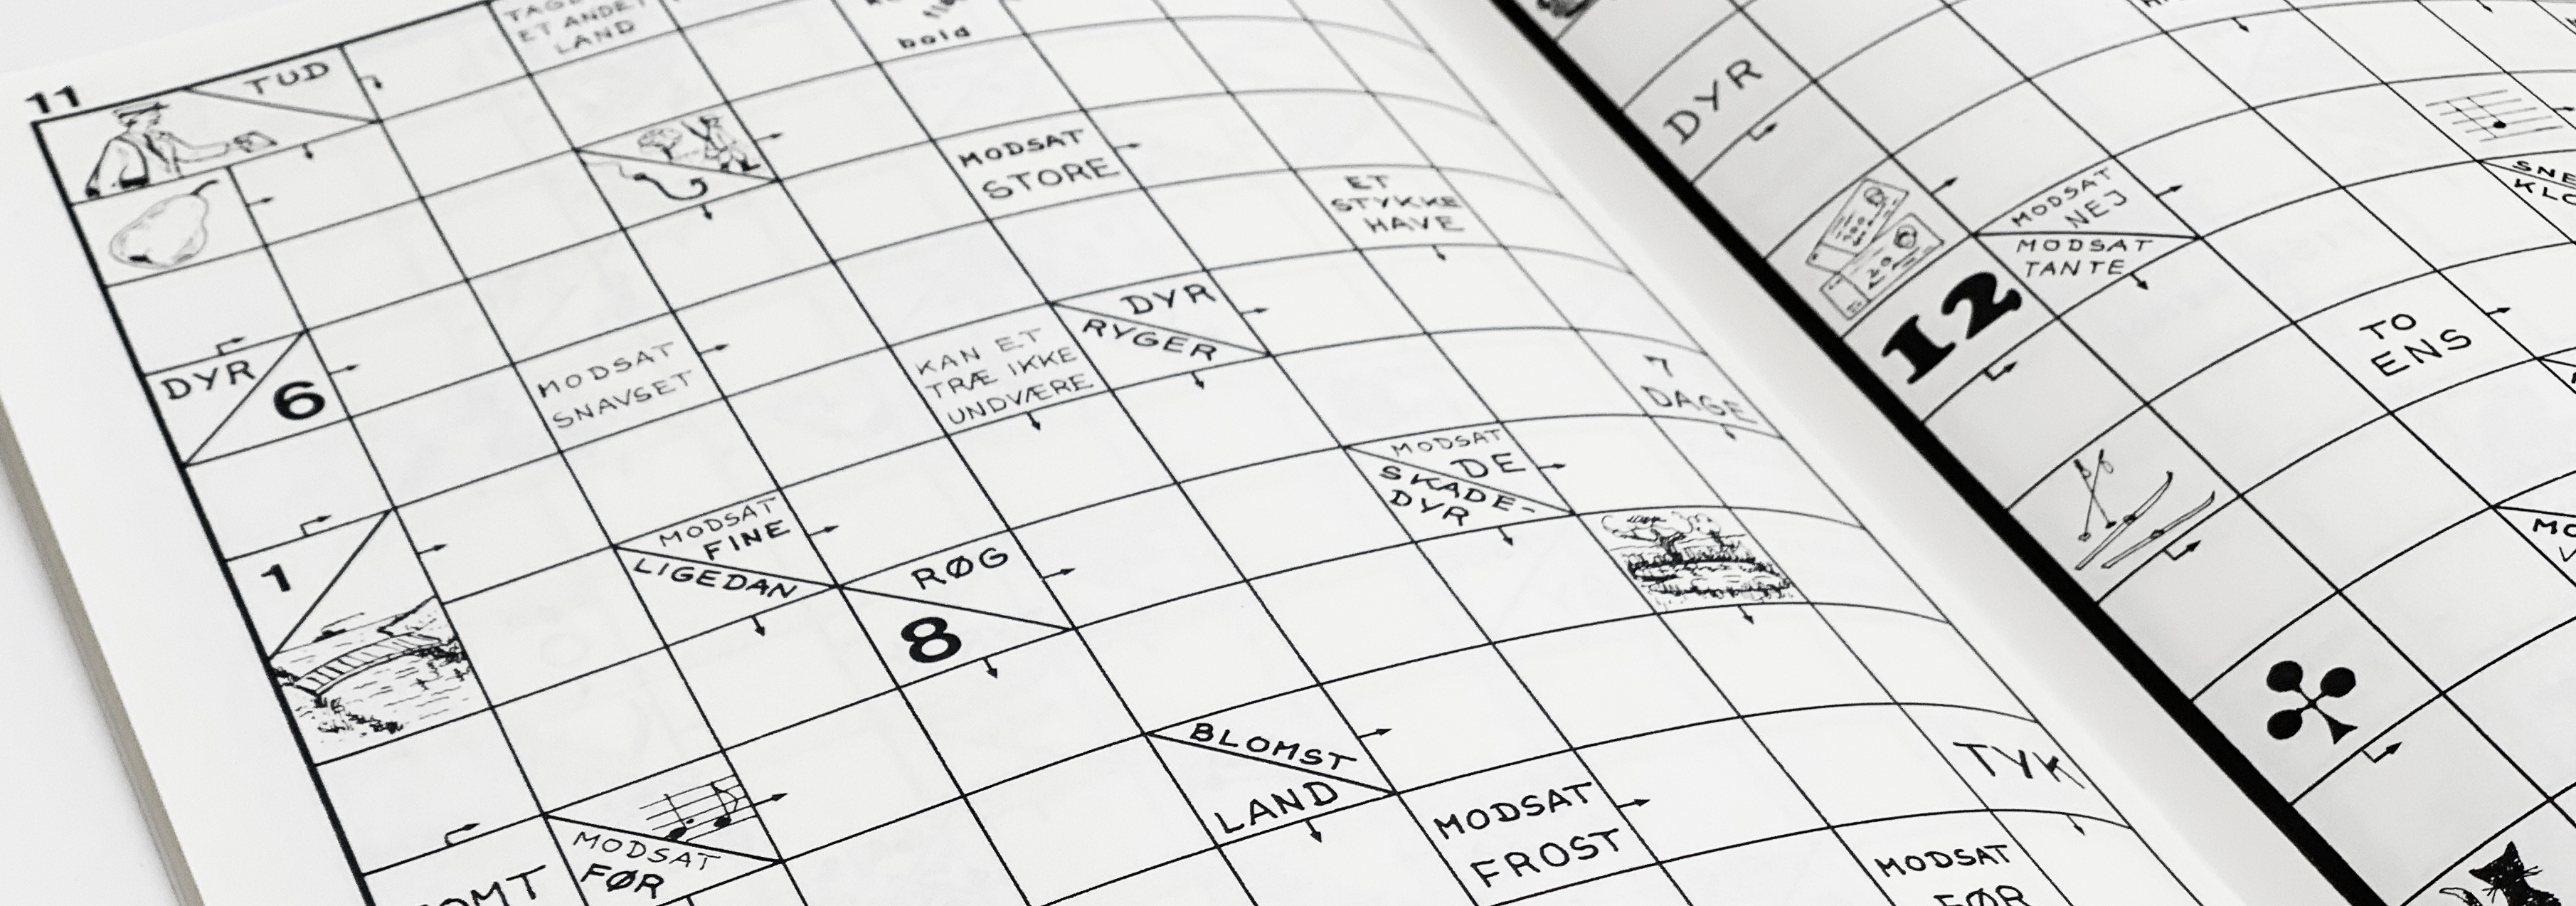 ET ANDET
LAND
bold
11
TUD
MODSAT
STORE
ET
STYKKE
HAVE
DYR
6
MODSAT
SNAVSET
KAN ET
TRÆ IKKE
UNDVÆRE
DYR
RYGER
7
DAGE
1
MODSAT
FINE
LIGEDAN
RØG
8
MODSAT
DE
SKADE-
DYR
MODSAT
FØR
BLOMST
LAND
MODSAT
FROST
TYK
MODSAT
FØR
DYR
12
MODSAT
NEJ
MODSAT
TANTE
TO
ENS